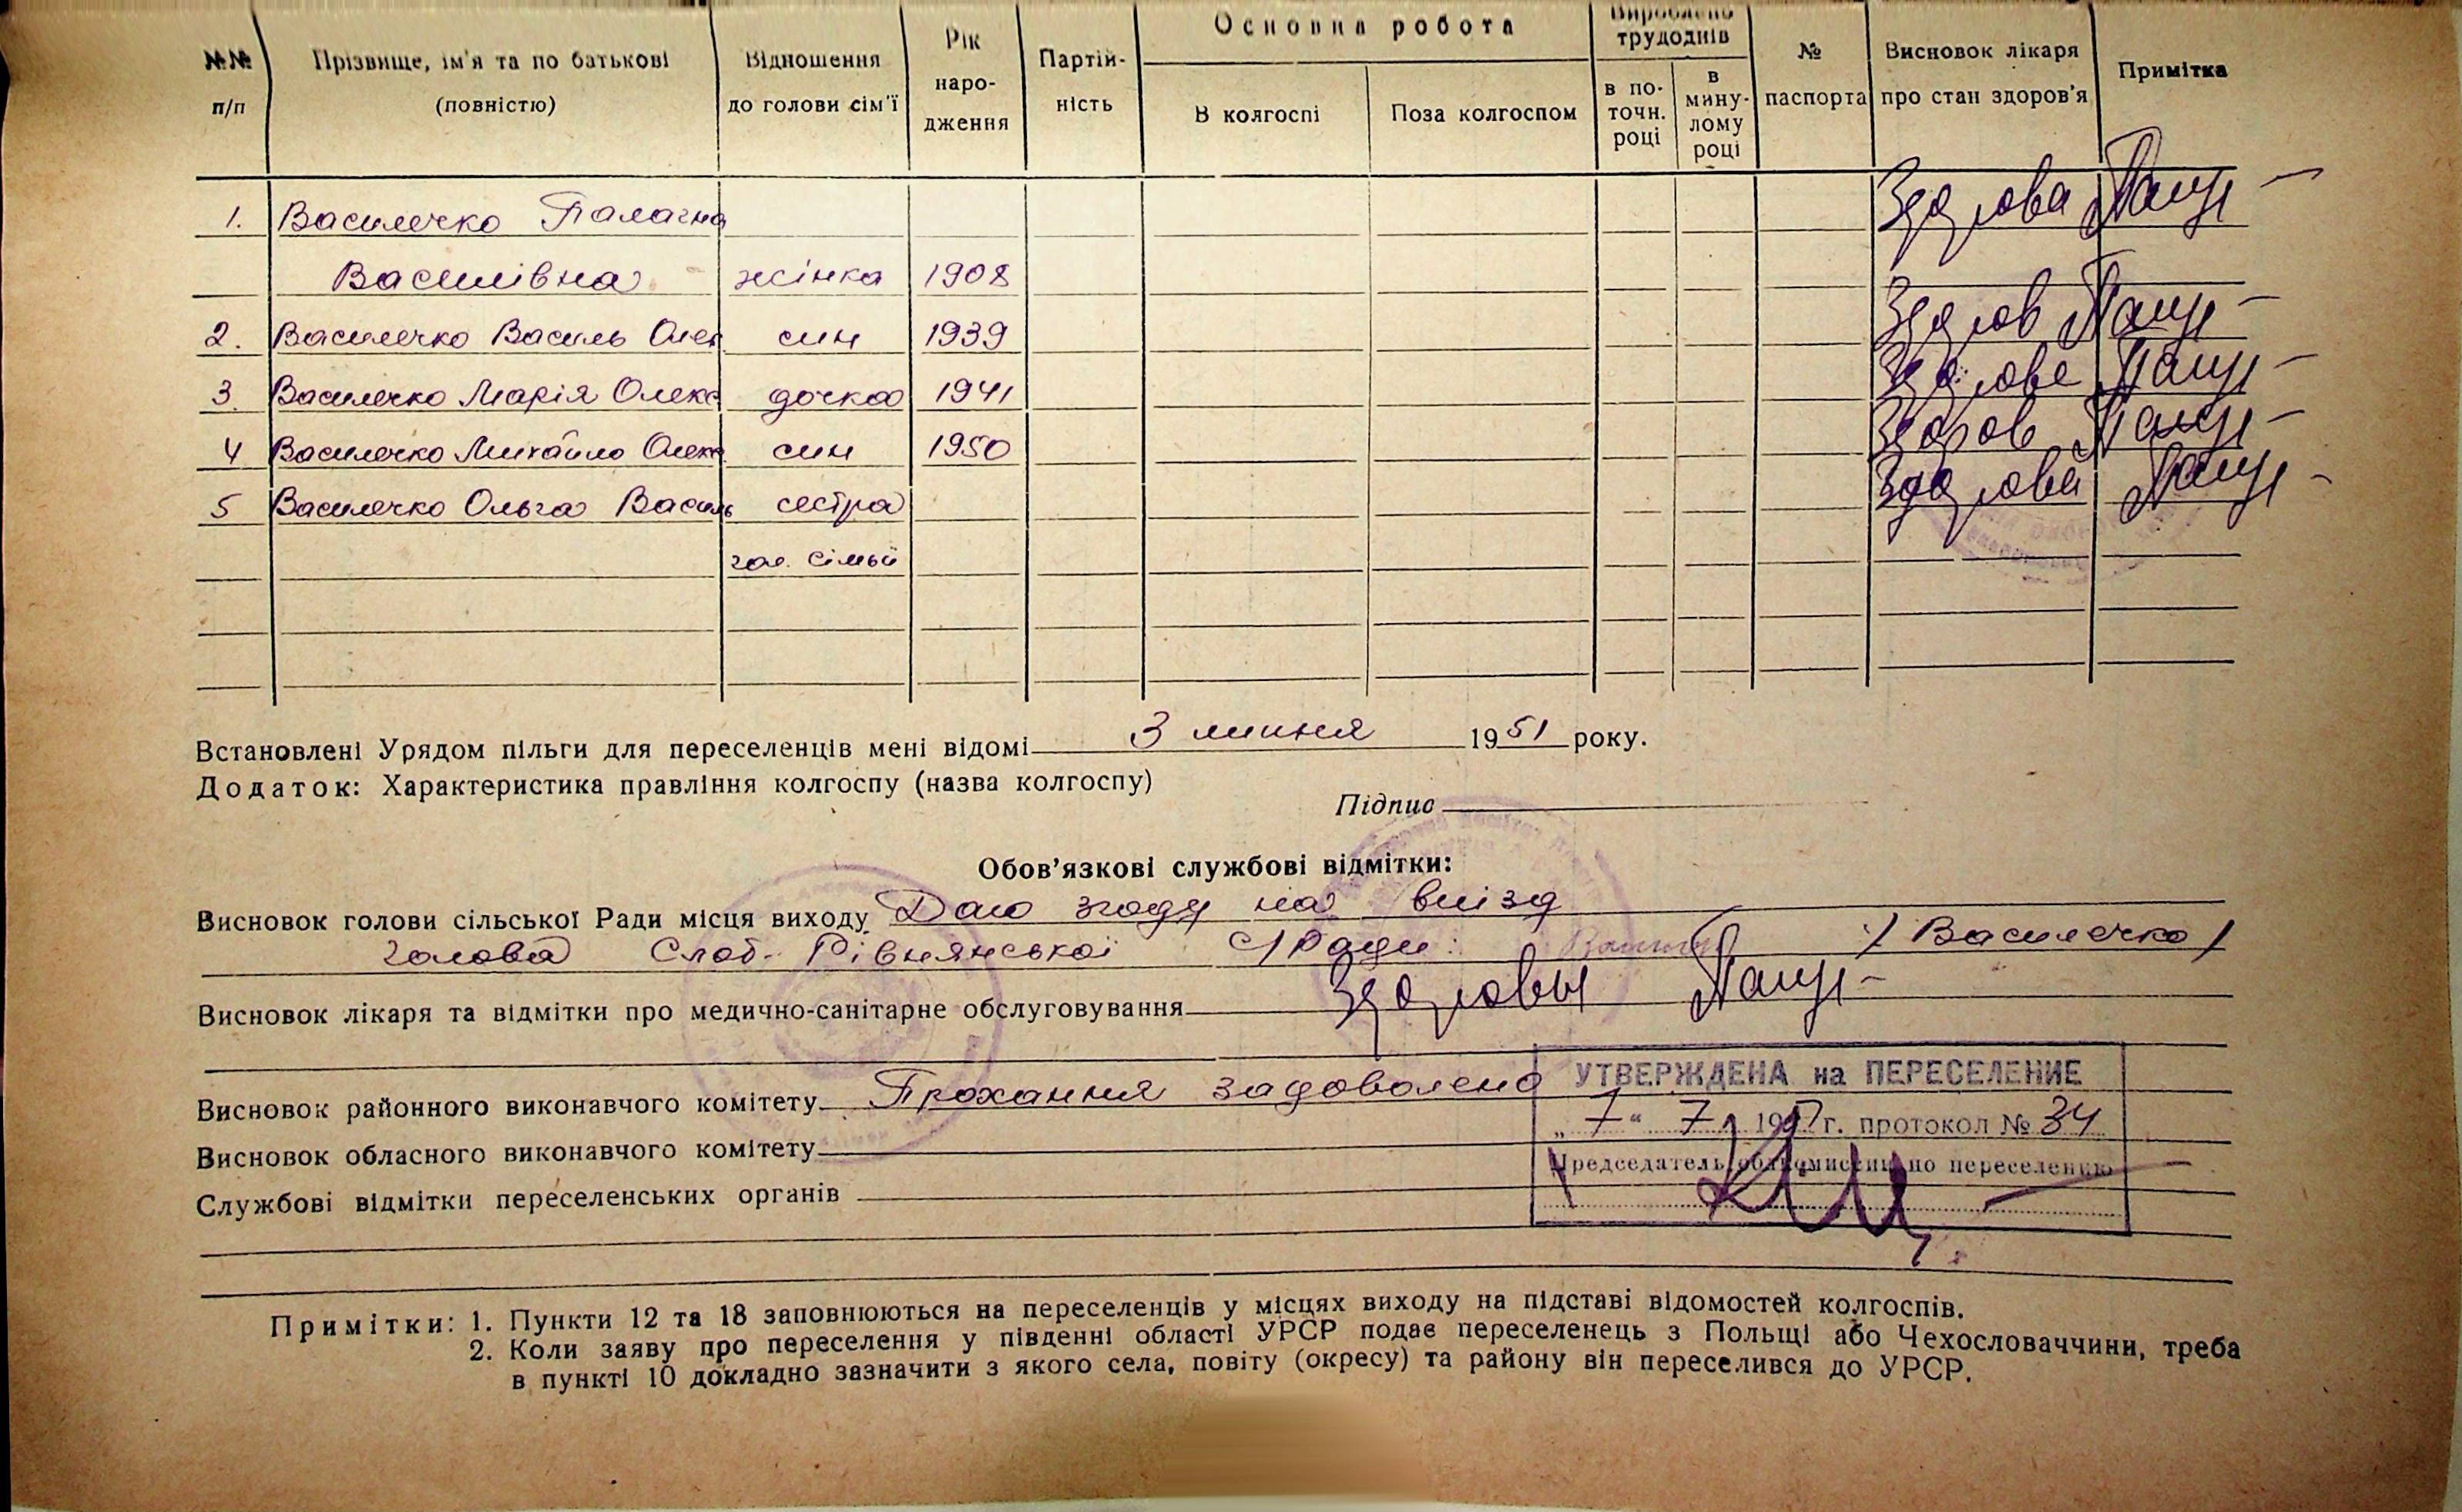 Основна робота
Вироблено трудоднів
№№ п/п
Прізвище, ім'я та по батькові (повністю)
Відношення до голови сім'ї
Рік народження
Партій-ність
В колгоспі
Поза колгоспом
в по-точн. році
в мину-лому році
№ паспорта
Висновок лікаря про стан здоров'я
Примітка
1. Василечко Палагна
Василівна жінка 1908 Здорова
2. Василечко Василь Олек син 1939 Здоров
3. Василечко Марія Олекс дочка 1941 Здорова
4 Василечко Михайло Олек син 1950 Здоров
5 Василечко Ольга Василь сестра Здорова
гол. сімьї
Встановлені Урядом пільги для переселенців мені відомі 3 липня 1951 року.
Додаток: Характеристика правління колгоспу (назва колгоспу)
Підпис
Обов'язкові службові відмітки:
Висновок голови сільської Ради місця виходу Даю згоду на виїзд
Голова Слоб-Рівнянської с/Ради: /Василечко/
Висновок лікаря та відмітки про медично-санітарне обслуговування Здоровы
Висновок районного виконавчого комітету Прохання задоволено
УТВЕРЖДЕНА на ПЕРЕСЕЛЕНИЕ
„7“ 7 1951 г. протокол № 34
Председатель облкомиссии по переселению
Висновок обласного виконавчого комітету
Службові відмітки переселенських органів
Примітки: 1. Пункти 12 та 18 заповнюються на переселенців у місцях виходу на підставі відомостей колгоспів.
2. Коли заяву про переселення у південні області УРСР подає переселенець з Польщі або Чехословаччини, треба
в пункті 10 докладно зазначити з якого села, повіту (окресу) та району він переселився до УРСР.